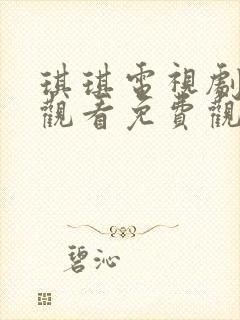 琪琪電視劇
觀看免費觀
碧沁